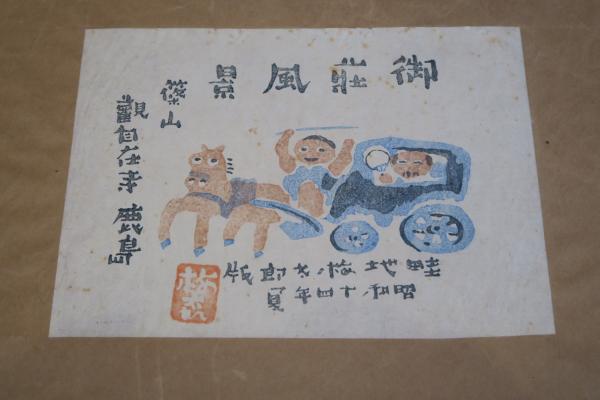 御荘風景
篠山
觀自在寺 鹿島
畦地梅太郎版
昭和十四年夏